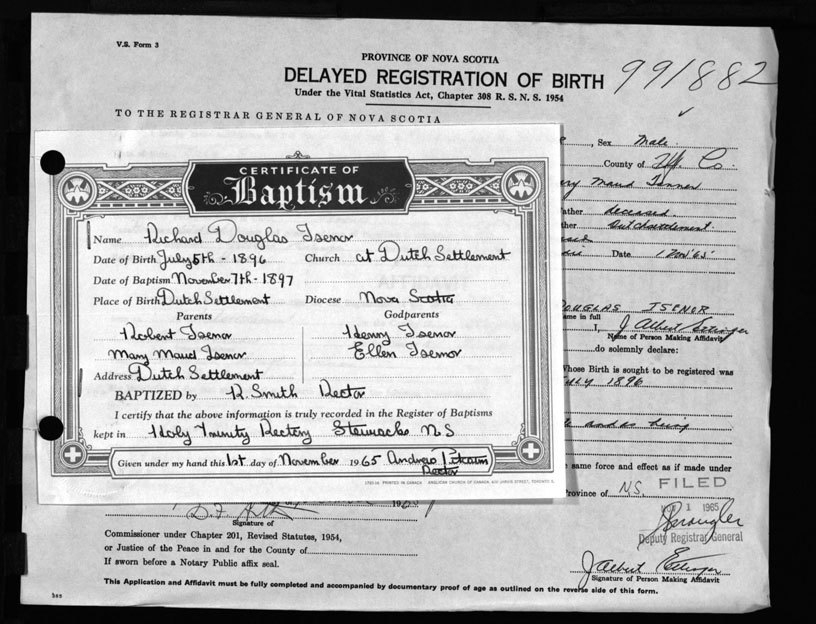 V.S. Form 3
PROVINCE OF NOVA SCOTIA
DELAYED REGISTRATION OF BIRTH 991882
Under the Vital Statistics Act, Chapter 308 R. S. N. S. 1954
TO THE REGISTRAR GENERAL OF NOVA SCOTIA
, Sex Male
County of Hfx Co.
Maud
deceased
Dutch Settlement
Date 1 Nov '65
CERTIFICATE OF
Baptism
Name Richard Douglas Isenor
Date of Birth July 5th - 1896 Church at Dutch Settlement
Date of Baptism November 7th - 1897
Place of Birth Dutch Settlement Diocese Nova Scotia
Parents Godparents
Robert Isenor Henry Isenor
Mary Maud Isenor Ellen Isenor
Address Dutch Settlement
BAPTIZED by R. Smith Rector
I certify that the above information is truly recorded in the Register of Baptisms
kept in Holy Trinity Rectory Stewiacke N S
Given under my hand this 1st day of November 1965 Andrew
Rector
PRINTED IN CANADA
DOUGLAS ISENOR
name in full
I, J Albert Ettinger
Name of Person Making Affidavit
do solemnly declare:
Whose Birth is sought to be registered was
July 1896
same force and effect as if made under
Province of N.S. FILED
1 1965
Deputy Registrar General
Signature of
Commissioner under Chapter 201, Revised Statutes, 1954,
or Justice of the Peace in and for the County of
If sworn before a Notary Public affix seal.
J Albert Ettinger
Signature of Person Making Affidavit
This Application and Affidavit must be fully completed and accompanied by documentary proof of age as outlined on the reverse side of this form.